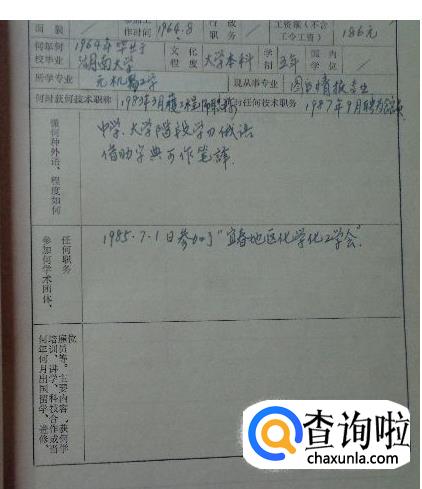 面貌 / 作时间 1964.8 职务 / 工资额(不含工令工资) 186元
何年何校毕业 1964年毕业于湖南大学 文化程度 大学本科 学制 五年 国内学位 /
所学专业 无机 工学 现从事专业 图书情报专业
何时获何技术职称 1983年3月 任何技术职务 1987年9月
懂何种外语,程度如何
中学、大学阶段学习俄语
借助字典可作笔译
任何职务 参加何学术团体、
1985.7.1日参加了"宜春地区化学化工学会"
何年何月出国留学、进修、
培训、讲学、科技合作或当
雇员等。主要内容,获何学
位
查询啦
chaxunla.com